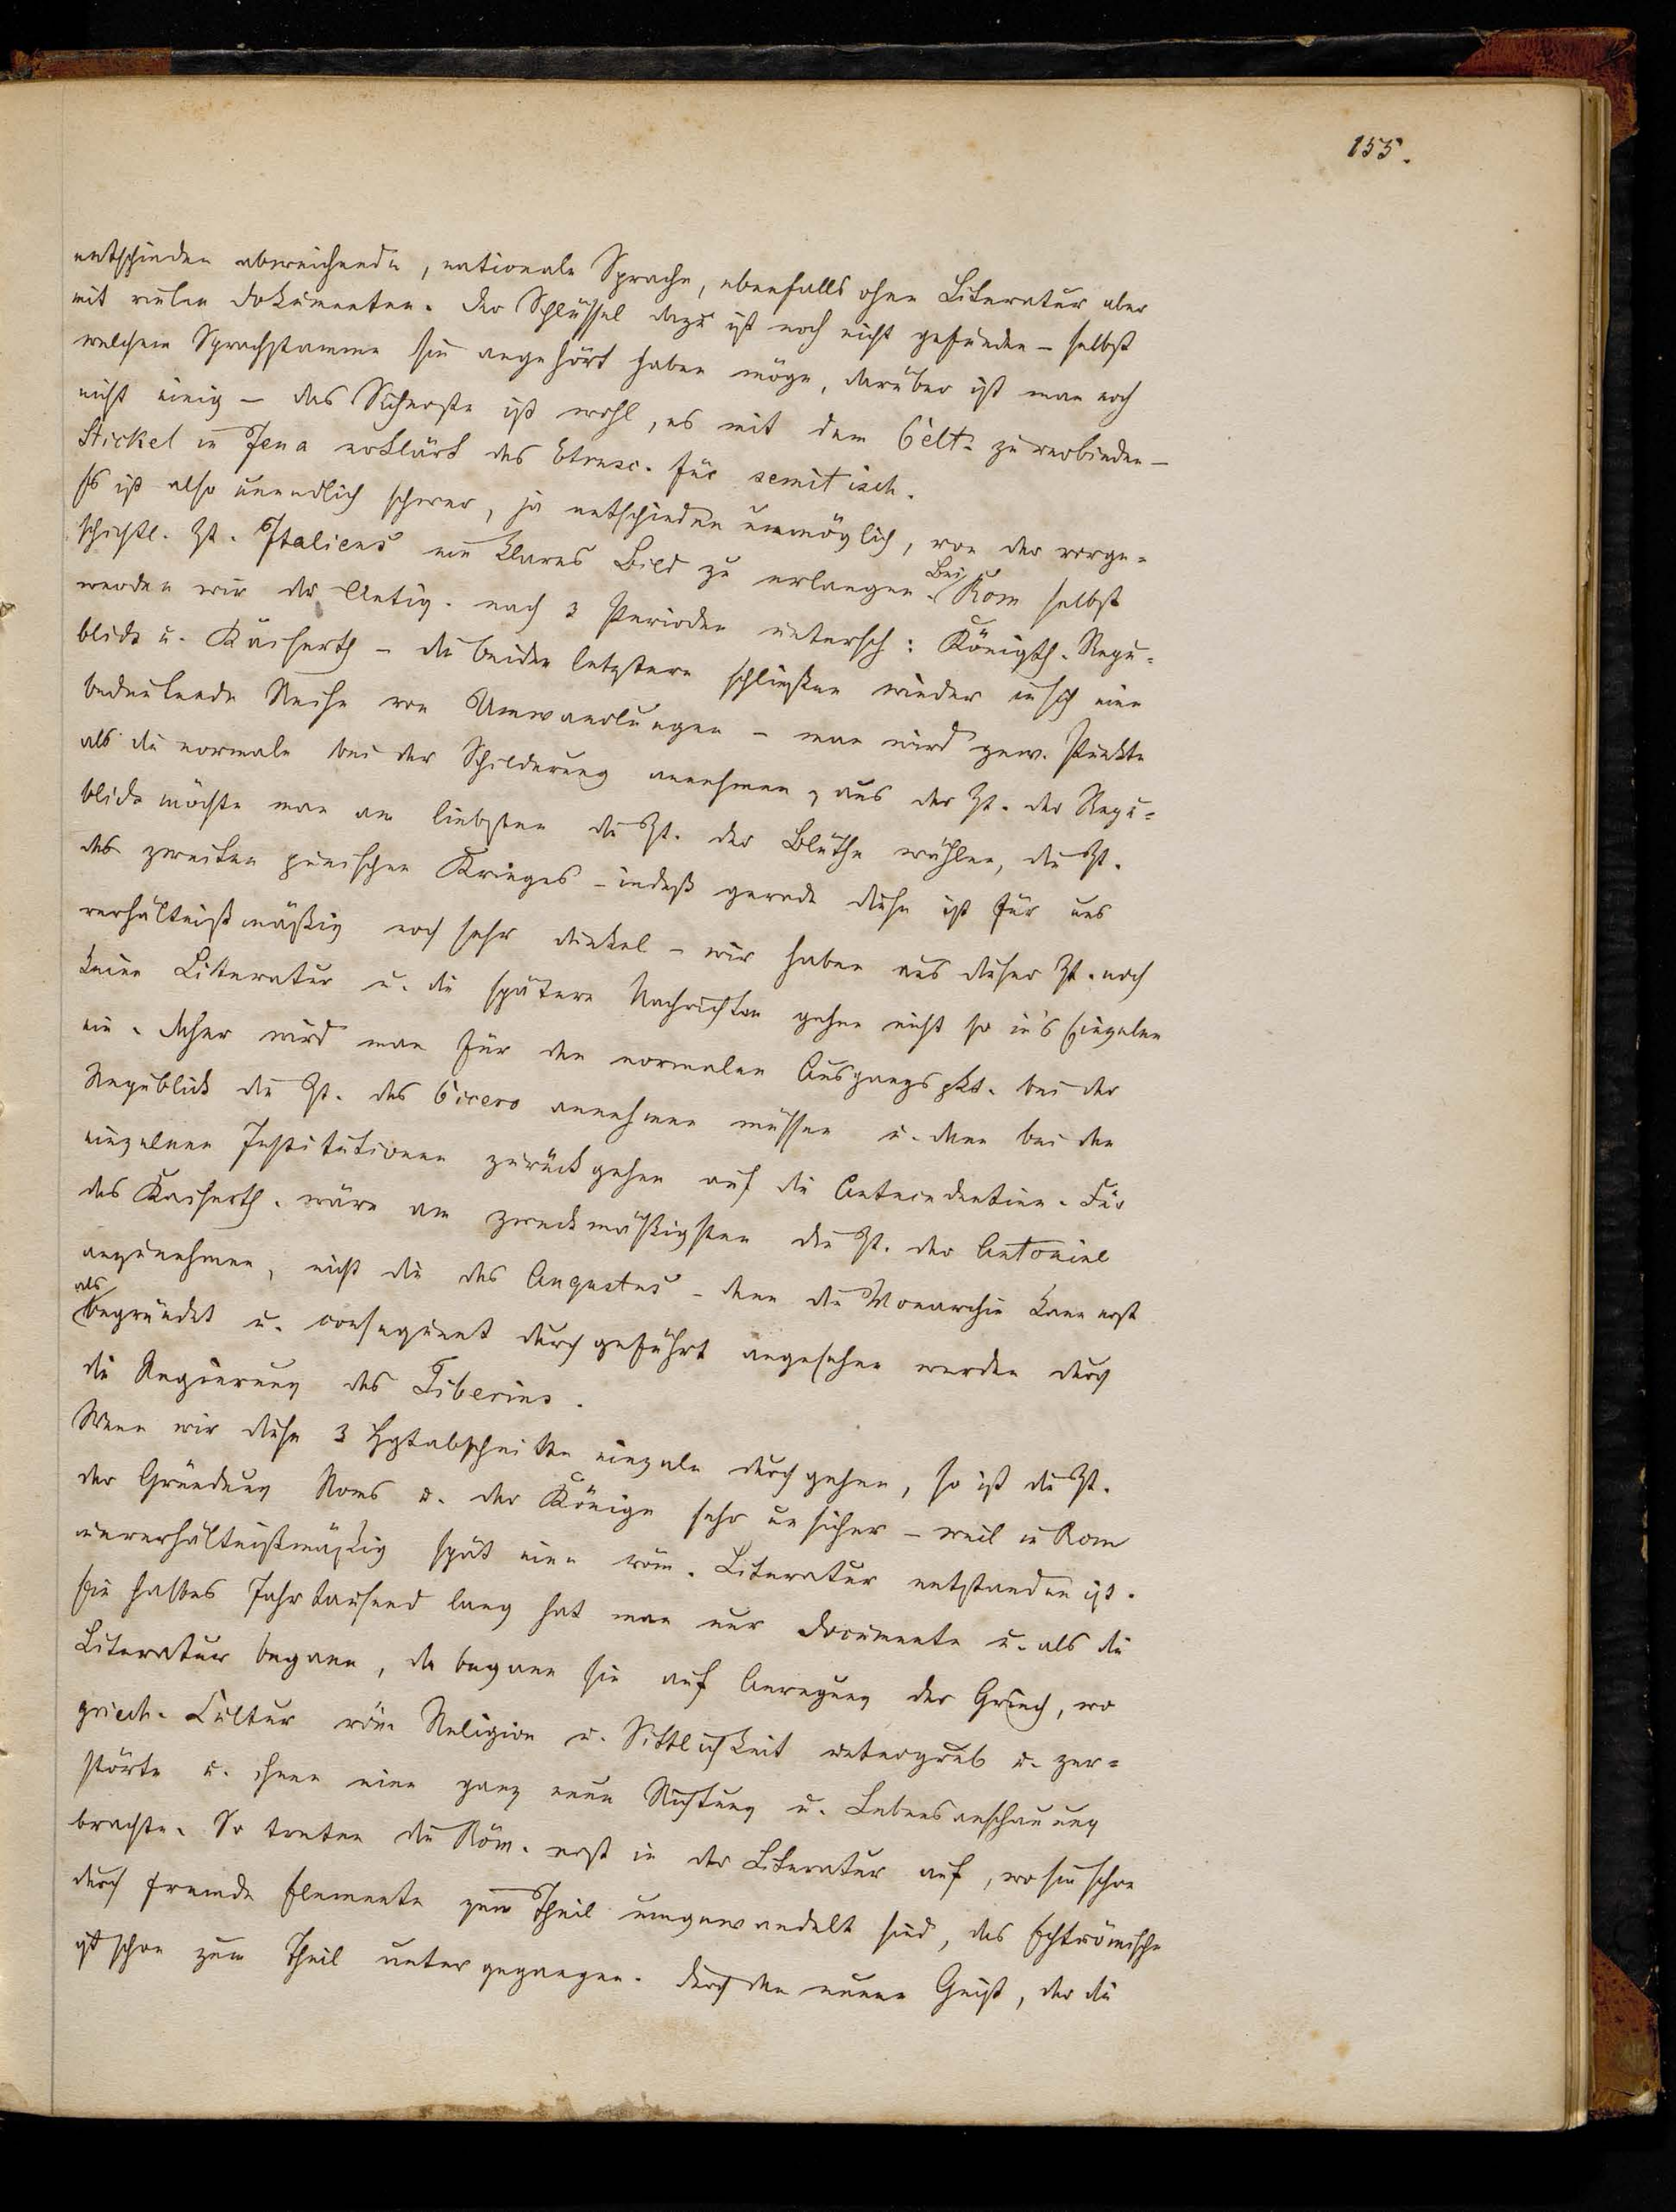 155.
entschieden abweichende, nationale Sprache, ebenfalls ohne Literatur aber
mit vielen Dokumenten. Der Schlüssel dazu ist noch nicht gefunden – selbst
welchem Sprachstamme sie angehört haben möge, darüber ist man noch
nicht einig – das Sicherste ist wohl, es mit dem Celt. zu verbinden –
Stickel in Jena erklärt das Etrusc. für semitisch.
Es ist also unendlich schwer, ja entschieden unmöglich, von der vorge-
schichtl. Zt. Italiens ein klares Bild zu erlangen. Bei Rom selbst
werden wir die Antiq. nach 3 Perioden untersch: Königth. Repu-
blick u. Kaiserth – die beiden letztern schließen wieder in sich eine
bedeutende Reihe von Umwandlungen – man wird gew. Punkte
als die normale bei der Schilderung annehmen, aus der Zt. der Repu-
blick möchte man am liebsten die Zt. der Blüthe wählen, die Zt.
des zweiten punischen Krieges – indeß gerade diese ist für uns
verhältnißmäßig noch sehr dunkel – wir haben aus dieser Zt. noch
keine Literatur u. die spätern Nachrichten gehen nicht so in's Einzelne
ein. Daher wird man für den normalen Ausgangspkt. bei der
Republick die Zt. des Cicero annehmen müssen u. dann bei den
einzelnen Institutionen zurückgehen auf die Antecedentien. Für
das Kaiserth. wäre am zweckmäßigsten die Zt. der Antonine
anzunehmen, nicht die des Augustus – denn die Monarchie kann erst
als begründet u. consequent durchgeführt angesehen werden durch
die Regierung des Tiberius.
Wenn wir diese 3 Hptabschnitte einzeln durchgehen, so ist die Zt.
der Gründung Roms u. der Könige sehr unsicher – weil in Rom
unverhältnißmäßig spät eine röm. Literatur entstanden ist.
Ein halbes Jahrtausend lang hat man nur Documente u. als die
Literatur begann, da begann sie auf Anregung der Griech, wo
griech. Cultur röm Religion u. Sittlichkeit untergrub u. zer-
störte u. ihnen eine ganz neue Richtung u. Lebensanschauung
brachte. So treten die Röm. erst in der Literatur auf, wo sie schon
durch fremde Elemente zum Theil umgewandelt sind, das Echtrömische
ist schon zum Theil untergegangen. Durch den neuen Geist, der die